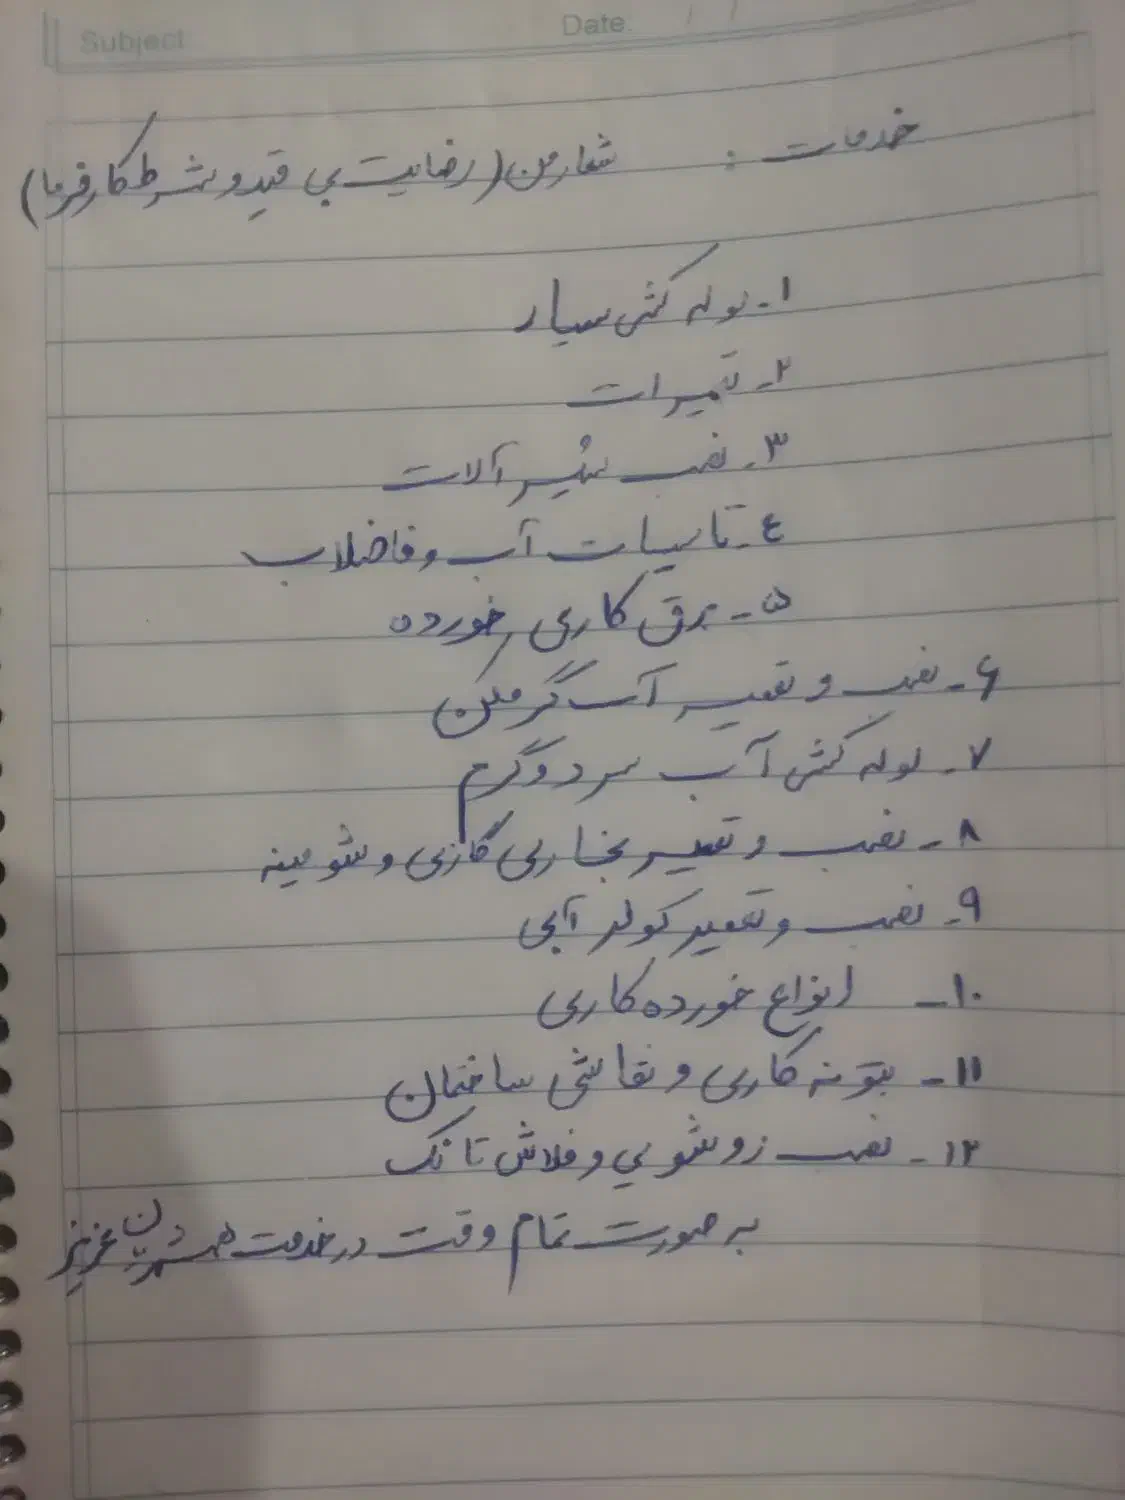 Subject
Date: / /
خدمات : شعار من (رضایت بی قید و شرط کارفرما)
۱- لوله کشی سیار
۲- تعمیرات
۳- نصب شیر آلات
٤- تاسیسات آب و فاضلاب
۵- برق کاری خورده
۶- نصب و تعمیر آب گرمکن
۷- لوله کشی آب سرد و گرم
۸- نصب و تعمیر بخاری گازی و شومینه
۹- نصب و تعمیر کولر آبی
۱۰- انواع خورده کاری
۱۱- بتونه کاری و نقاشی ساختمان
۱۲- نصب روشویی و فلاش تانک
به صورت تمام وقت در خدمت همشهریان عزیز